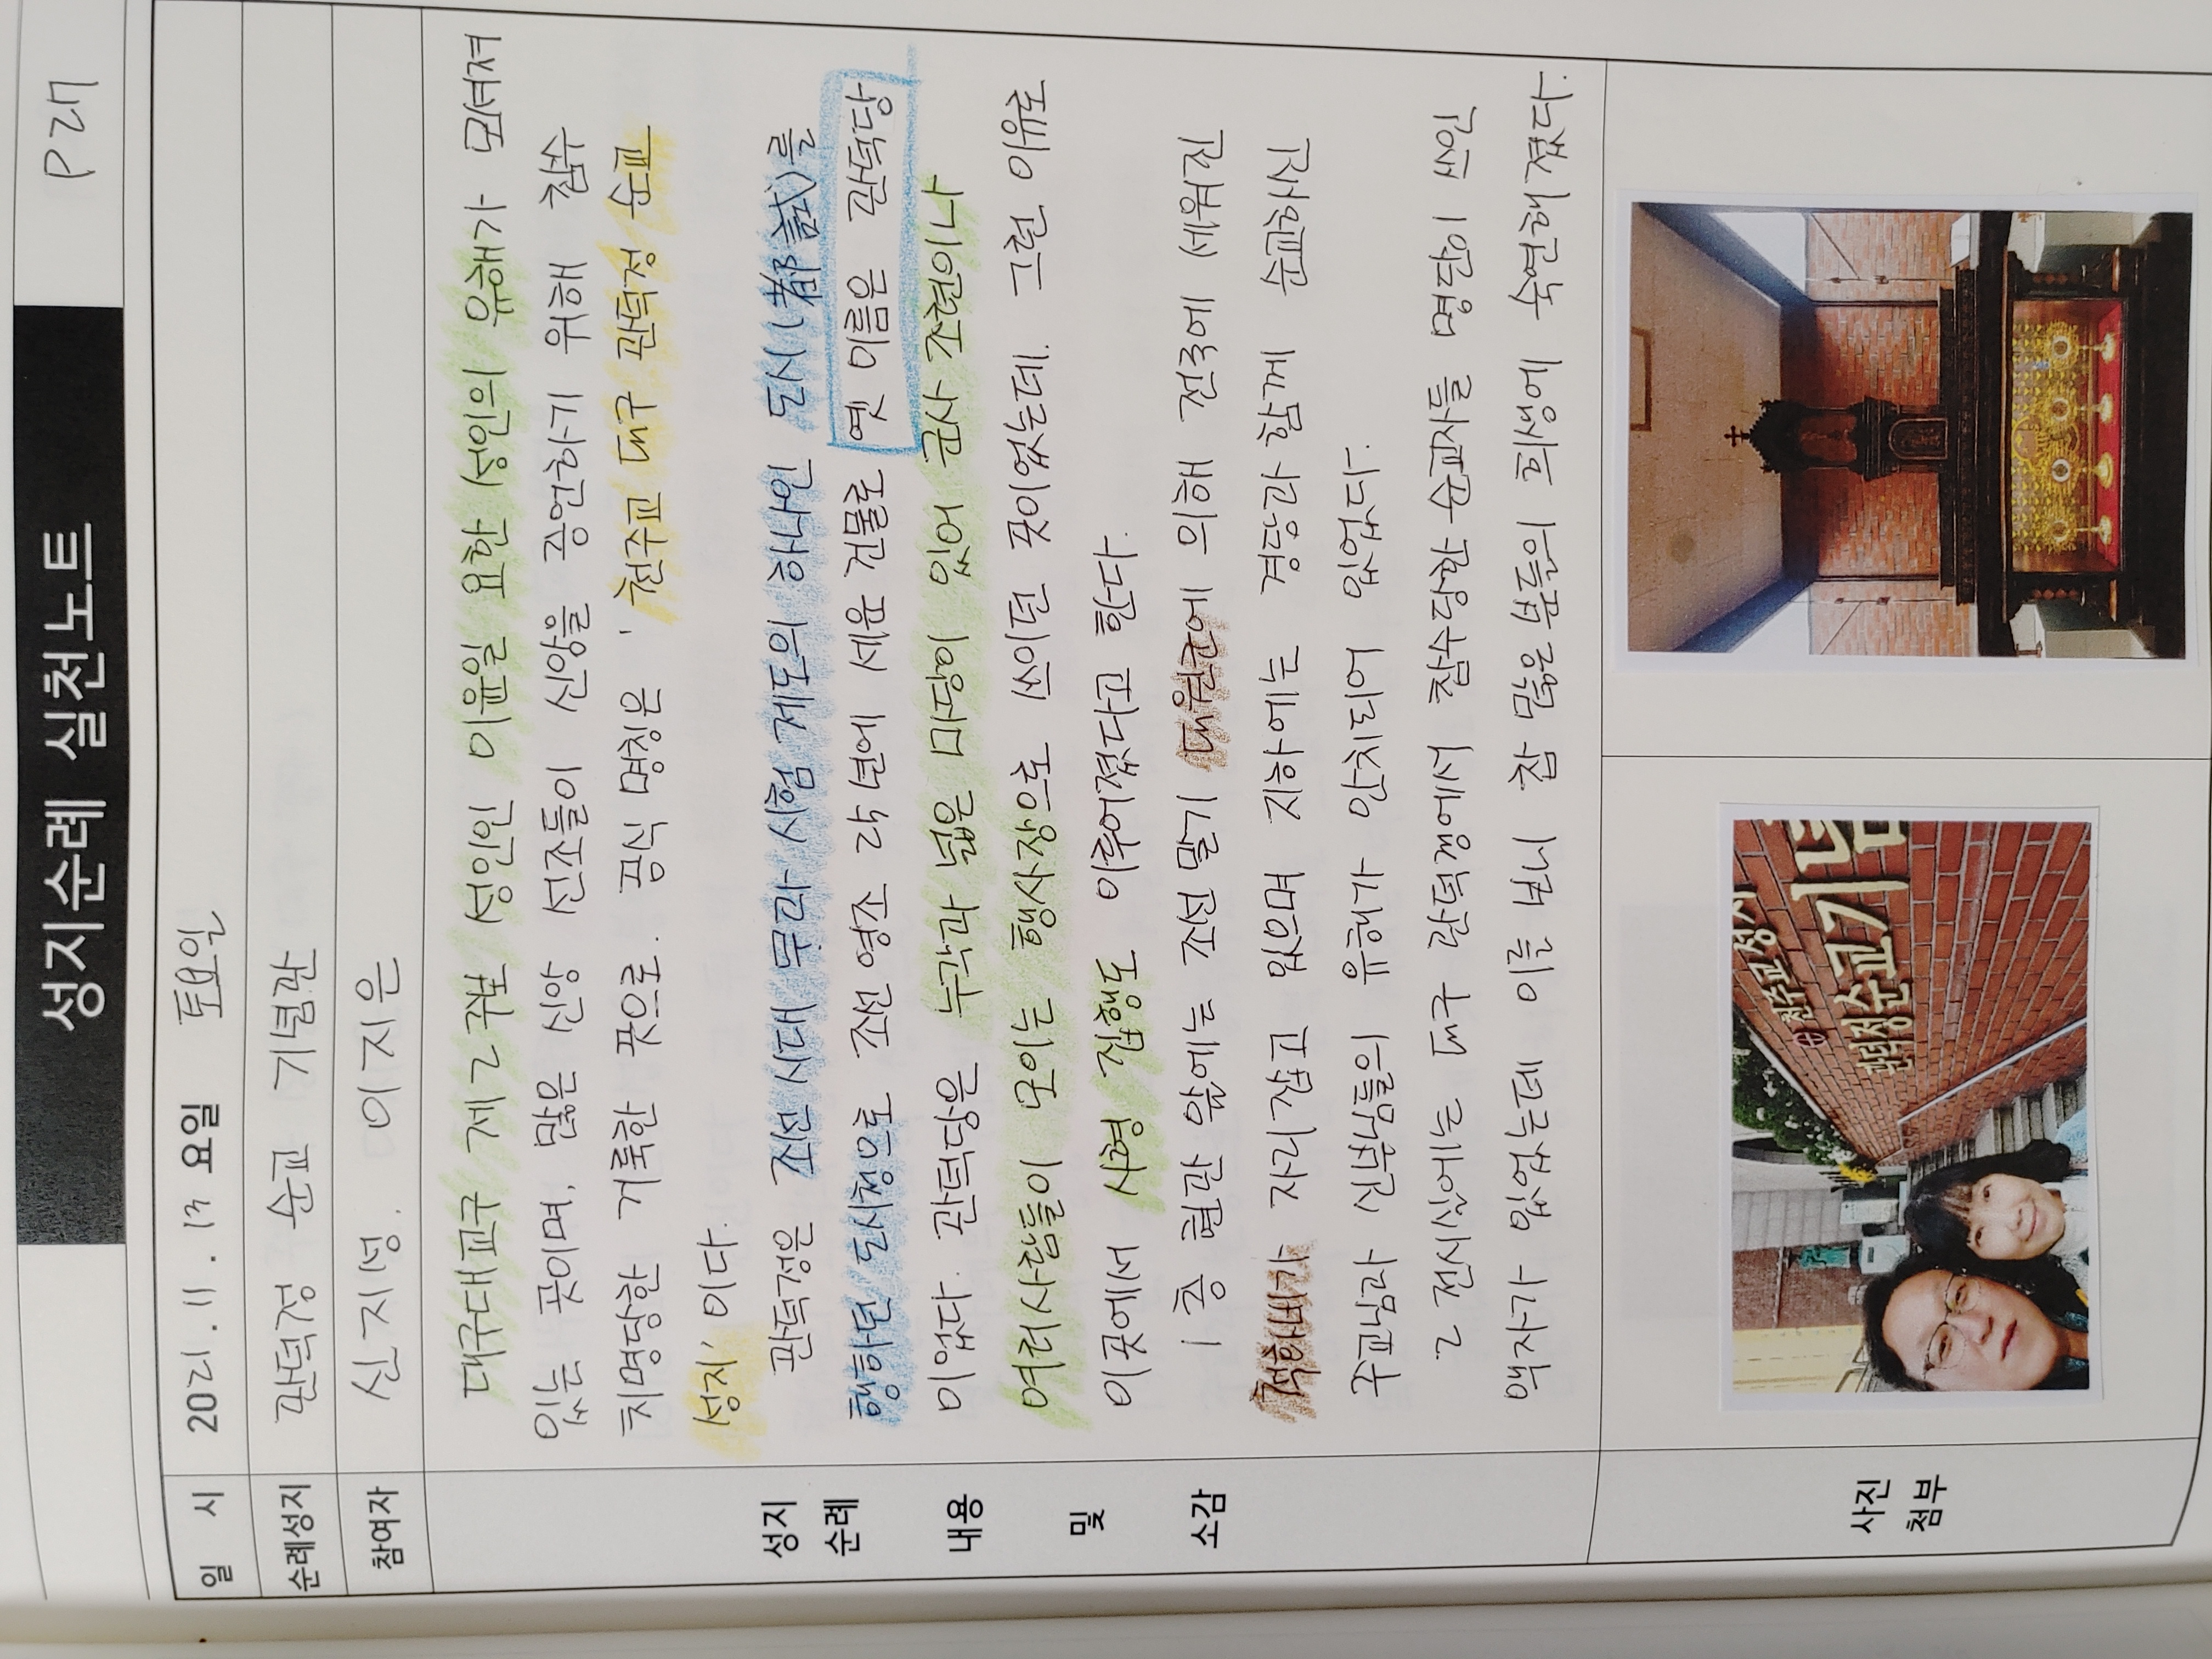 성지순례 실천노트
P 27
일 시 2021. 11. 13 요일 토요일
순례성지 관덕정 순교 기념관
참여자 신지성. 이지은
성지 순례 내용 및 소감
대구대교구 제2주보 성인인 이윤일 요한 성인의 유해가 모셔져
있는 곳이며, 많은 신앙 선조들이 신앙을 증언하기 위해 참수
치명당한 거룩한 곳으로. 공식 명칭은 '천주교 대구 관덕정 순교
성지' 이다.
관덕정은 조선시대 무과 시험 제도의 하나인 도시(都試)를
행하던 도시청으로 조선 영조 25년에 세운 건물로 옛 이름은 관덕당
이었다. 관덕당은 누각과 넓은 마당이 있어 군사 조련이나
여러사람들이 모이는 행사장으로 쓰이던 곳이었는데. 그런 이유로
이곳에서 사형 집행도 이루어졌다고 한다.
1층 현관 앞에는 조선 말기 대원군에 의해 전국에 세워진
척화비가 자리잡고 있으며 지하에는 경당과 함께 순교하신
주교님과 신부님들의 유해가 안치되어 있었다.
2 전시실에는 대구 관덕정에서 참수당한 순교자들 명단이 쓰인
액자가 있었는데 이를 보니 참 많은 분들의 희생에 숙연해졌다.
사진 첨부
천주교성지
관덕정순교기념